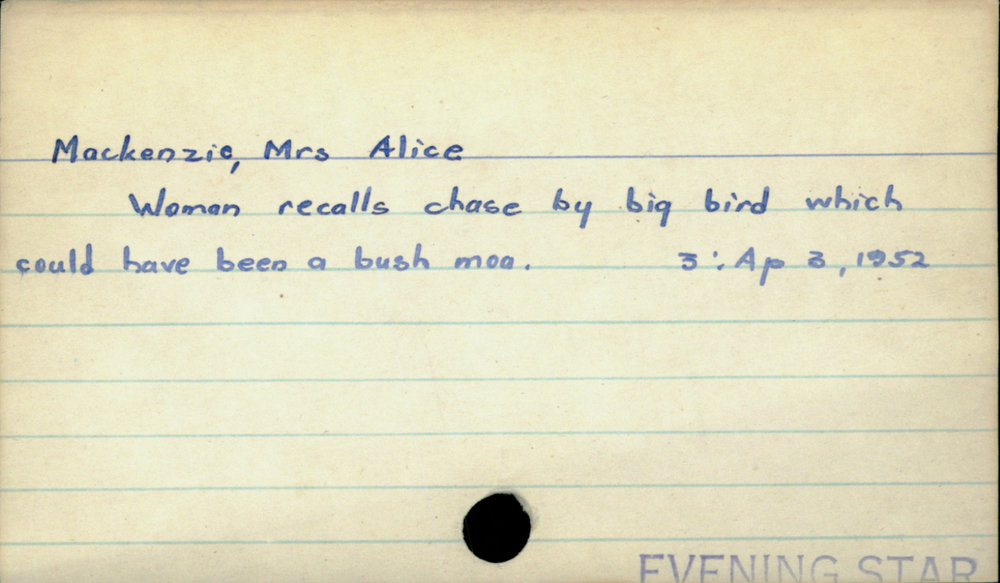 Mackenzie, Mrs Alice
Woman recalls chase by big bird which
could have been a bush moa. 3: Ap 3, 1952
EVENING STAR